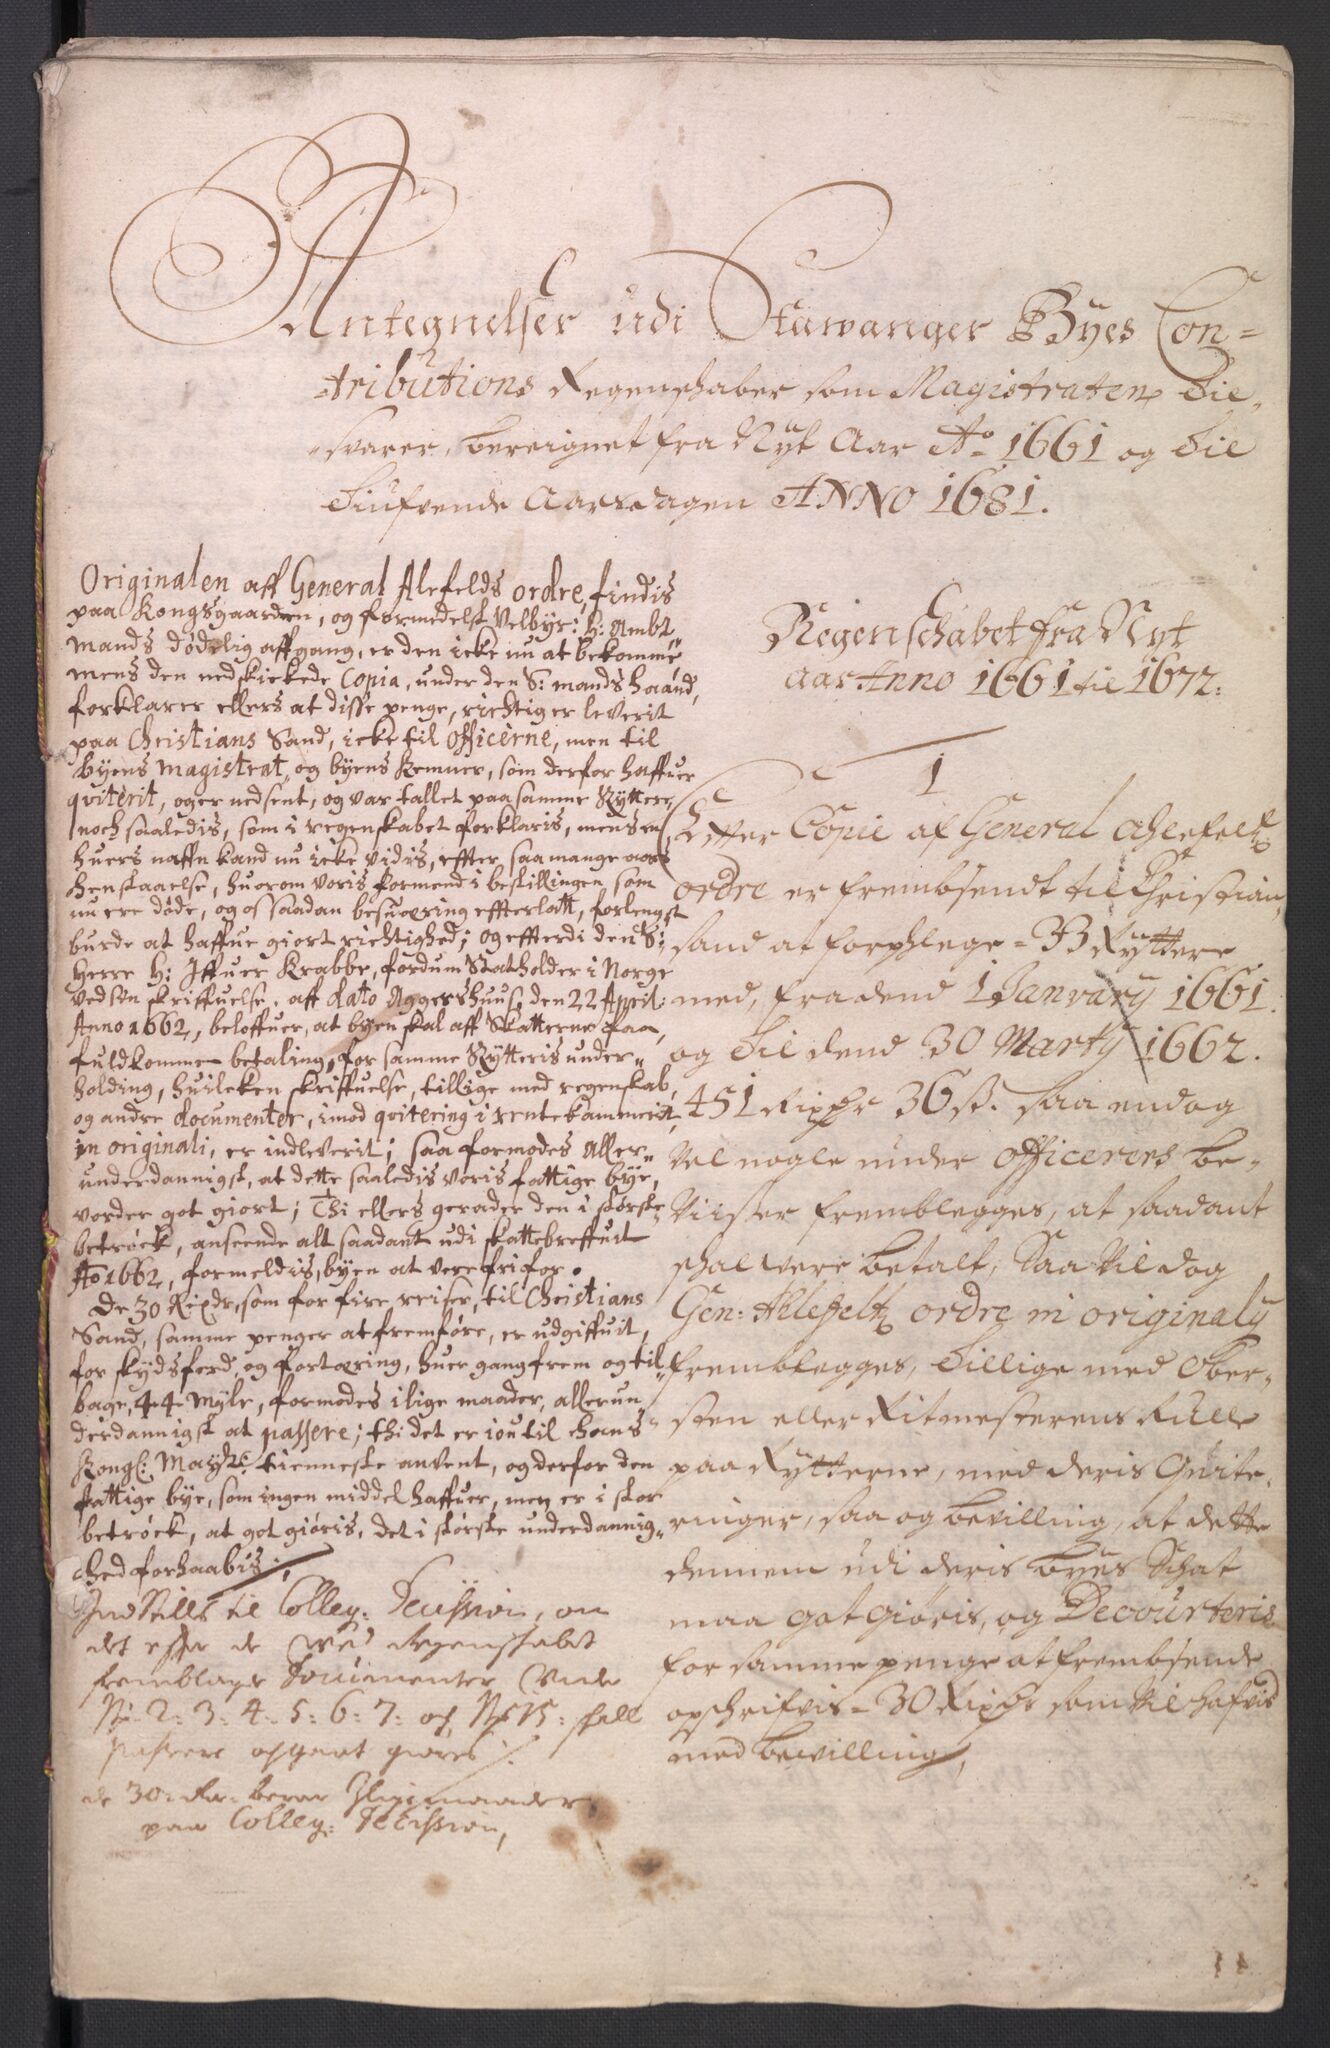 Antegnelser udi Stawanger Byes Con=
=tributions Regenschaber som Magistraten Til,
svarer, bereignet fra Nyt Aar Ao 1661 og Til
Tiufvende Aarsdagen ANNO 1681.
Regenschabet fra Nyt
aar Anno 1661 til 1672:
1
Efter Copie af General Ahlefeldtz
ordre er frembsendt til Christian,
sand at forphlege = 33 Ryttere
med, fra dend 1 Janvary 1661.
og Til dend 30 Marty 1662.
451 Rixdr 36 ß. saa endog
Vel nogle under officerers be-
Viiser fremblegges, at saadant
schal were betalt, Saa Vil dog
Gen: Ahlefeltz ordre in originaly
fremblegges, Tillige med Ober-
sten eller Ritmesterens Rulle
paa Rytterne, med deris Qvite-
ringer, saa og bevilling, at dette
dennem udi deris byes Schat
maa got giøris, og Decourteris
for samme penge at frembsende
opschrifvis = 30 Rixdr som Vil hafvis
med bewilling,
Originalen aff General Alefelds ordre, findis
paa Kongsgaarden, og formedelst Velbyr: H: Ambt
mands dødelig affgang, er den icke nu at bekomme
mens den nedskickede Copia, under den S: mands haand,
forklarer ellers at disse penge, richtig er leverit
paa Christians Sand, icke til Officerne, men til
byens Magistrat, og byens Kemner, som derfor haffuer
qviterit, og er nedsent, og var tallet paa samme Ryttere
noch saaledis, som i regenskabet forklaris, mens en
huers naffn kand nu icke vidis, effter saa mange aars
henstaaelse, huorom voris formend i bestillingen som
nu ere døde, og os saadan besuæring effterlatt, forlengst
burde at haffue giort richtighed; og effterdi den S:
Herre H: Iffuer Krabbe, fordum Statholder i Norge
ved sin skriffuelse, aff dato Aggershuus den 22 April:
Anno 1662, beloffuer, at byen skal aff Skatterne faa,
fuldkommen betaling, for samme Rytteris under=
holding, huileken skriffuelse, tillige med regenskab,
og andre documenter, imod qvitering i rentekammerit,
in originali, er indleverit; saa formodes Aller=
underdannigst, at dette saaledis voris fattige bye,
vorder got giort; Thi ellers gerader den i største
betrøck, anseende alt saadant udi skattebreffuit
Ao 1662, formeldis, byen at vere fri for.
De 30 Rixdr, som for fire reiser, til Christians
Sand, samme penger at fremføre, er udgiffuit,
for skydsferd, og fortæring, huer gang frem og til=
bage, 44 Myle, formodes i lige maader, allerun
derdannigst at passere; thi det er iou til Hans
Kongl: Maytz: tienneste anvent, og derfor den
fattige bye, som ingen middel haffuer, men er i stor
betrøck, at got giøris, det i største underdannig=
hed forhaabis;
Indstilles til Colley: Decission, om
det efter de wed Regenskabet
fremblagde Documenter Unde
No: 2: 3: 4: 5: 6: 7: og No 15: skall
passere og gaat giøres
de 30: Rdr beror I lige maader
paa Colley: Decission,